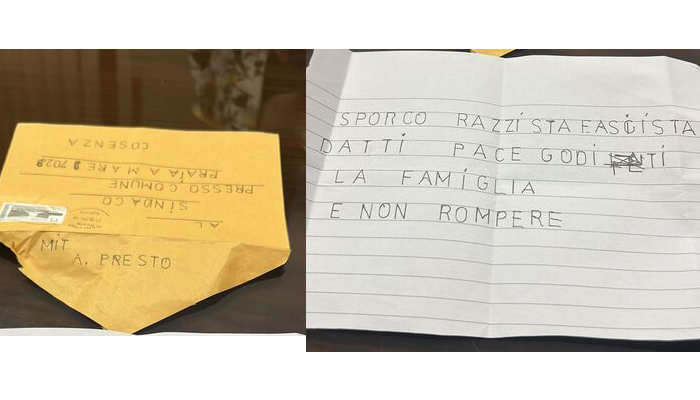 AL
SINDACO
PRESSO COMUNE
PRAIA A MARE
COSENZA
MIT
A. PRESTO
SPORCO RAZZISTA FASCISTA
DATTI PACE GODITI
LA FAMIGLIA
E NON ROMPERE